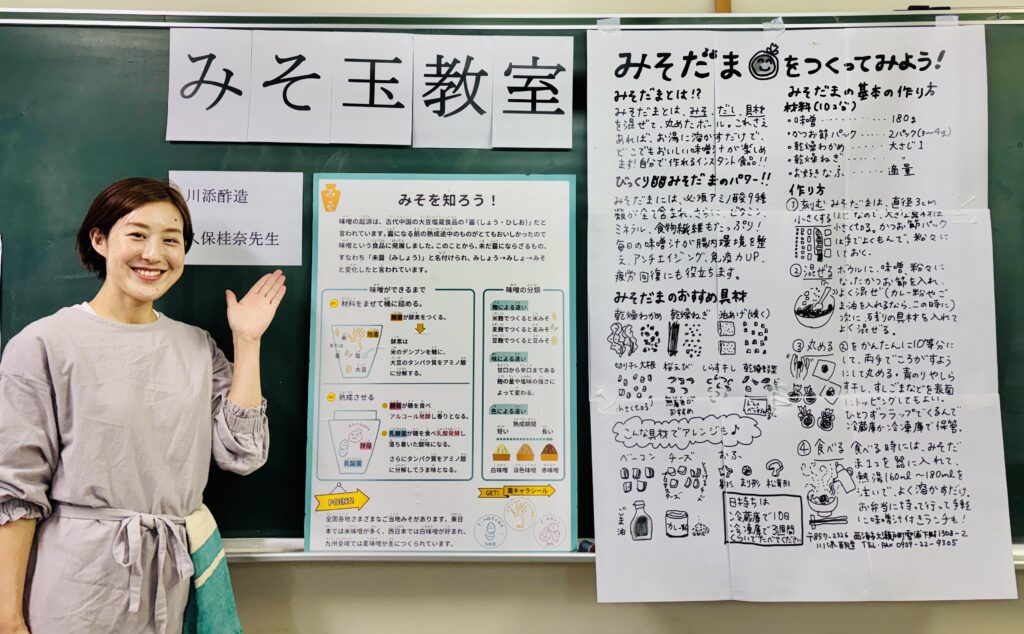 みそ玉教室
川添酢造
久保桂奈先生
みそ
みそを知ろう！
味噌の起源は、古代中国の大豆塩蔵食品の「醤（しょう・ひしお）」だと
言われています。醤になる前の熟成途中のものがとてもおいしかったので
味噌という食品に発展しました。このことから、未だ醤にならざるもの、
すなわち「未醤（みしょう）」と名付けられ、みしょう→みしょ→みそ
と変化したと言われています。
味噌ができるまで
材料をまぜて桶に詰める。
麹菌が酵素をつくる。
酵素は
米のデンプンを糖に、
大豆のタンパク質をアミノ酸
に分解する。
米
または
麦
塩
大豆
麹菌
熟成させる
酵母が糖を食べ
アルコール発酵し香りとなる。
乳酸菌が糖を食べ乳酸発酵し
落ち着いた酸味になる。
さらにタンパク質をアミノ酸
に分解してうま味となる。
酵母
乳酸菌
味噌の分類
麹による違い
米麹でつくると米みそ
麦麹でつくると麦みそ
豆麹でつくると豆みそ
味による違い
甘口から辛口まである
麹の量や塩味の強さに
よって変わる。
色による違い
熟成期間
短い 長い
白味噌 淡色味噌 赤味噌
POINT!
GET! 菌キャラシール
全国各地さまざまなご当地みそがあります。東日
本では米味噌が多く、西日本では白味噌が好まれ、
九州全域では麦味噌が主につくられています。
みそだまをつくってみよう!
みそだまとは!?
みそだまとは、みそ、だし、具材
を混ぜて、丸めたボール。これさえ
あれば、お湯に溶かすだけで、
どこでもおいしい味噌汁が楽しめ
ます!自分で作れるインスタント食品!!
びっくり!!みそだまのパワー!!
みそだまには、必須アミノ酸9種
類が全て含まれ、さらに、ビタミン、
ミネラル、食物繊維もたっぷり!
毎日の味噌汁が腸内環境を整
え、アンチエイジング、免疫力UP、
疲労回復にも役立ちます。
みそだまのおすすめ具材
乾燥わかめ 乾燥ねぎ 油あげ(焼く)
切り干し大根 桜えび しらす干し 乾燥野菜
小さく切る
こんな具材でアレンジも♪
ベーコン チーズ おふ
ごま油
カレー粉
日持ちは
冷蔵庫で10日
冷凍庫で3週間
くらいでたべてください
みそだまの基本の作り方
材料(10コ分)
・味噌 180g
・かつお節パック 2パック(3〜4g)
・乾燥わかめ 大さじ1
・乾燥ねぎ 〃
・お好きなふ 適量
作り方
①刻む
小さくする
みそだまは、直径3cm
ほどなので、大きな具材は
小さく切る。かつお節パック
は手でよくもんで、粉々に
しておく。
②混ぜる ボウルに、味噌、粉々に
なったかつお節を入れ、
よく混ぜ(カレー粉やご
ま油を入れるなら、この時に)
次に、残りの具材も入れて
よく混ぜる。
③丸める ②をかんたんに10等分に
して、両手でころがすよう
にして丸める。青のりやしら
す干し、すしごまなどを表面
にトッピングしてもよい。
ひとつずつラップでくるんで
冷蔵庫か冷凍庫で保管。
④食べる 食べる時には、みそだ
ま1コを器に入れて、
熱湯160ml〜180mlを
注いで、よく溶かすだけ。
お弁当に持って行って手軽
に味噌汁付きランチも!
〒857-2326
川添酢造 TEL・FAX 0959-22-9305